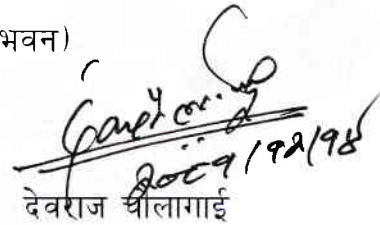 भवन)
२०८१/१२/१४
देवराज चौलागाई